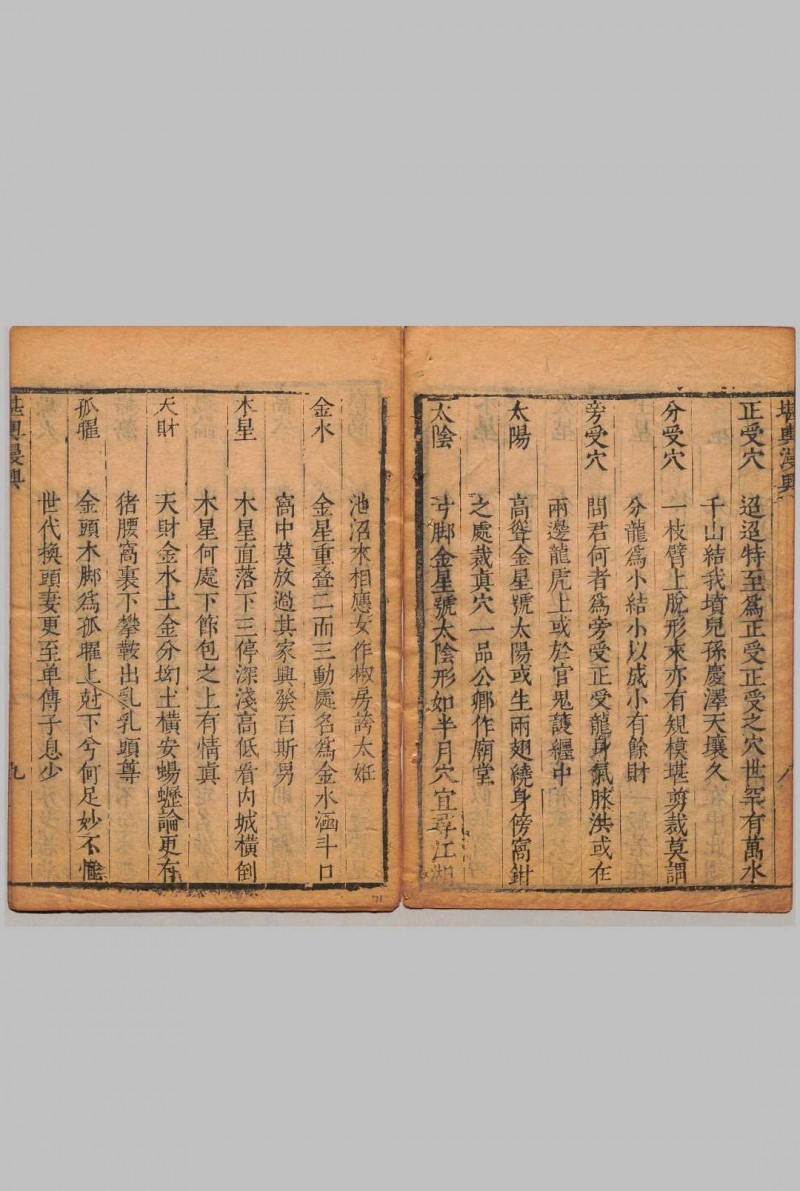 堪輿漫興
正受穴 迢迢特至爲正受正受之穴世罕有萬水
千山結我墳兒孫慶澤天壤久
分受穴 一枝臂上脫形來亦有規模堪剪裁莫謂
分龍爲小結小以成小有餘財
旁受穴 問君何者爲旁受正受龍身氣脉洪或在
兩邊龍虎上或於官鬼護纏中
太陽 高聳金星號太陽或生兩翅繞身傍窩鉗
之處裁真穴一品公卿作廟堂
太陰 金星號太陰形如半月穴宜尋江湖
八
池沼來相應女作椒房誇太姬
金水 金星重叠二而三動處名爲金水涵斗口
窩中莫放過其家興發百斯男
木星 木星直落下三停深淺高低看内城橫倒
木星何處下節包之上有情真
天財 天財金水土金分坳土橫安蜴蜥論更有
猪腰窩裏下攀鞍出乳乳頭尊
孤曜 金頭木脚爲孤曜上尅下兮何足妙不惟
世代換頭妻更至单傳子息少
堪輿漫興
九